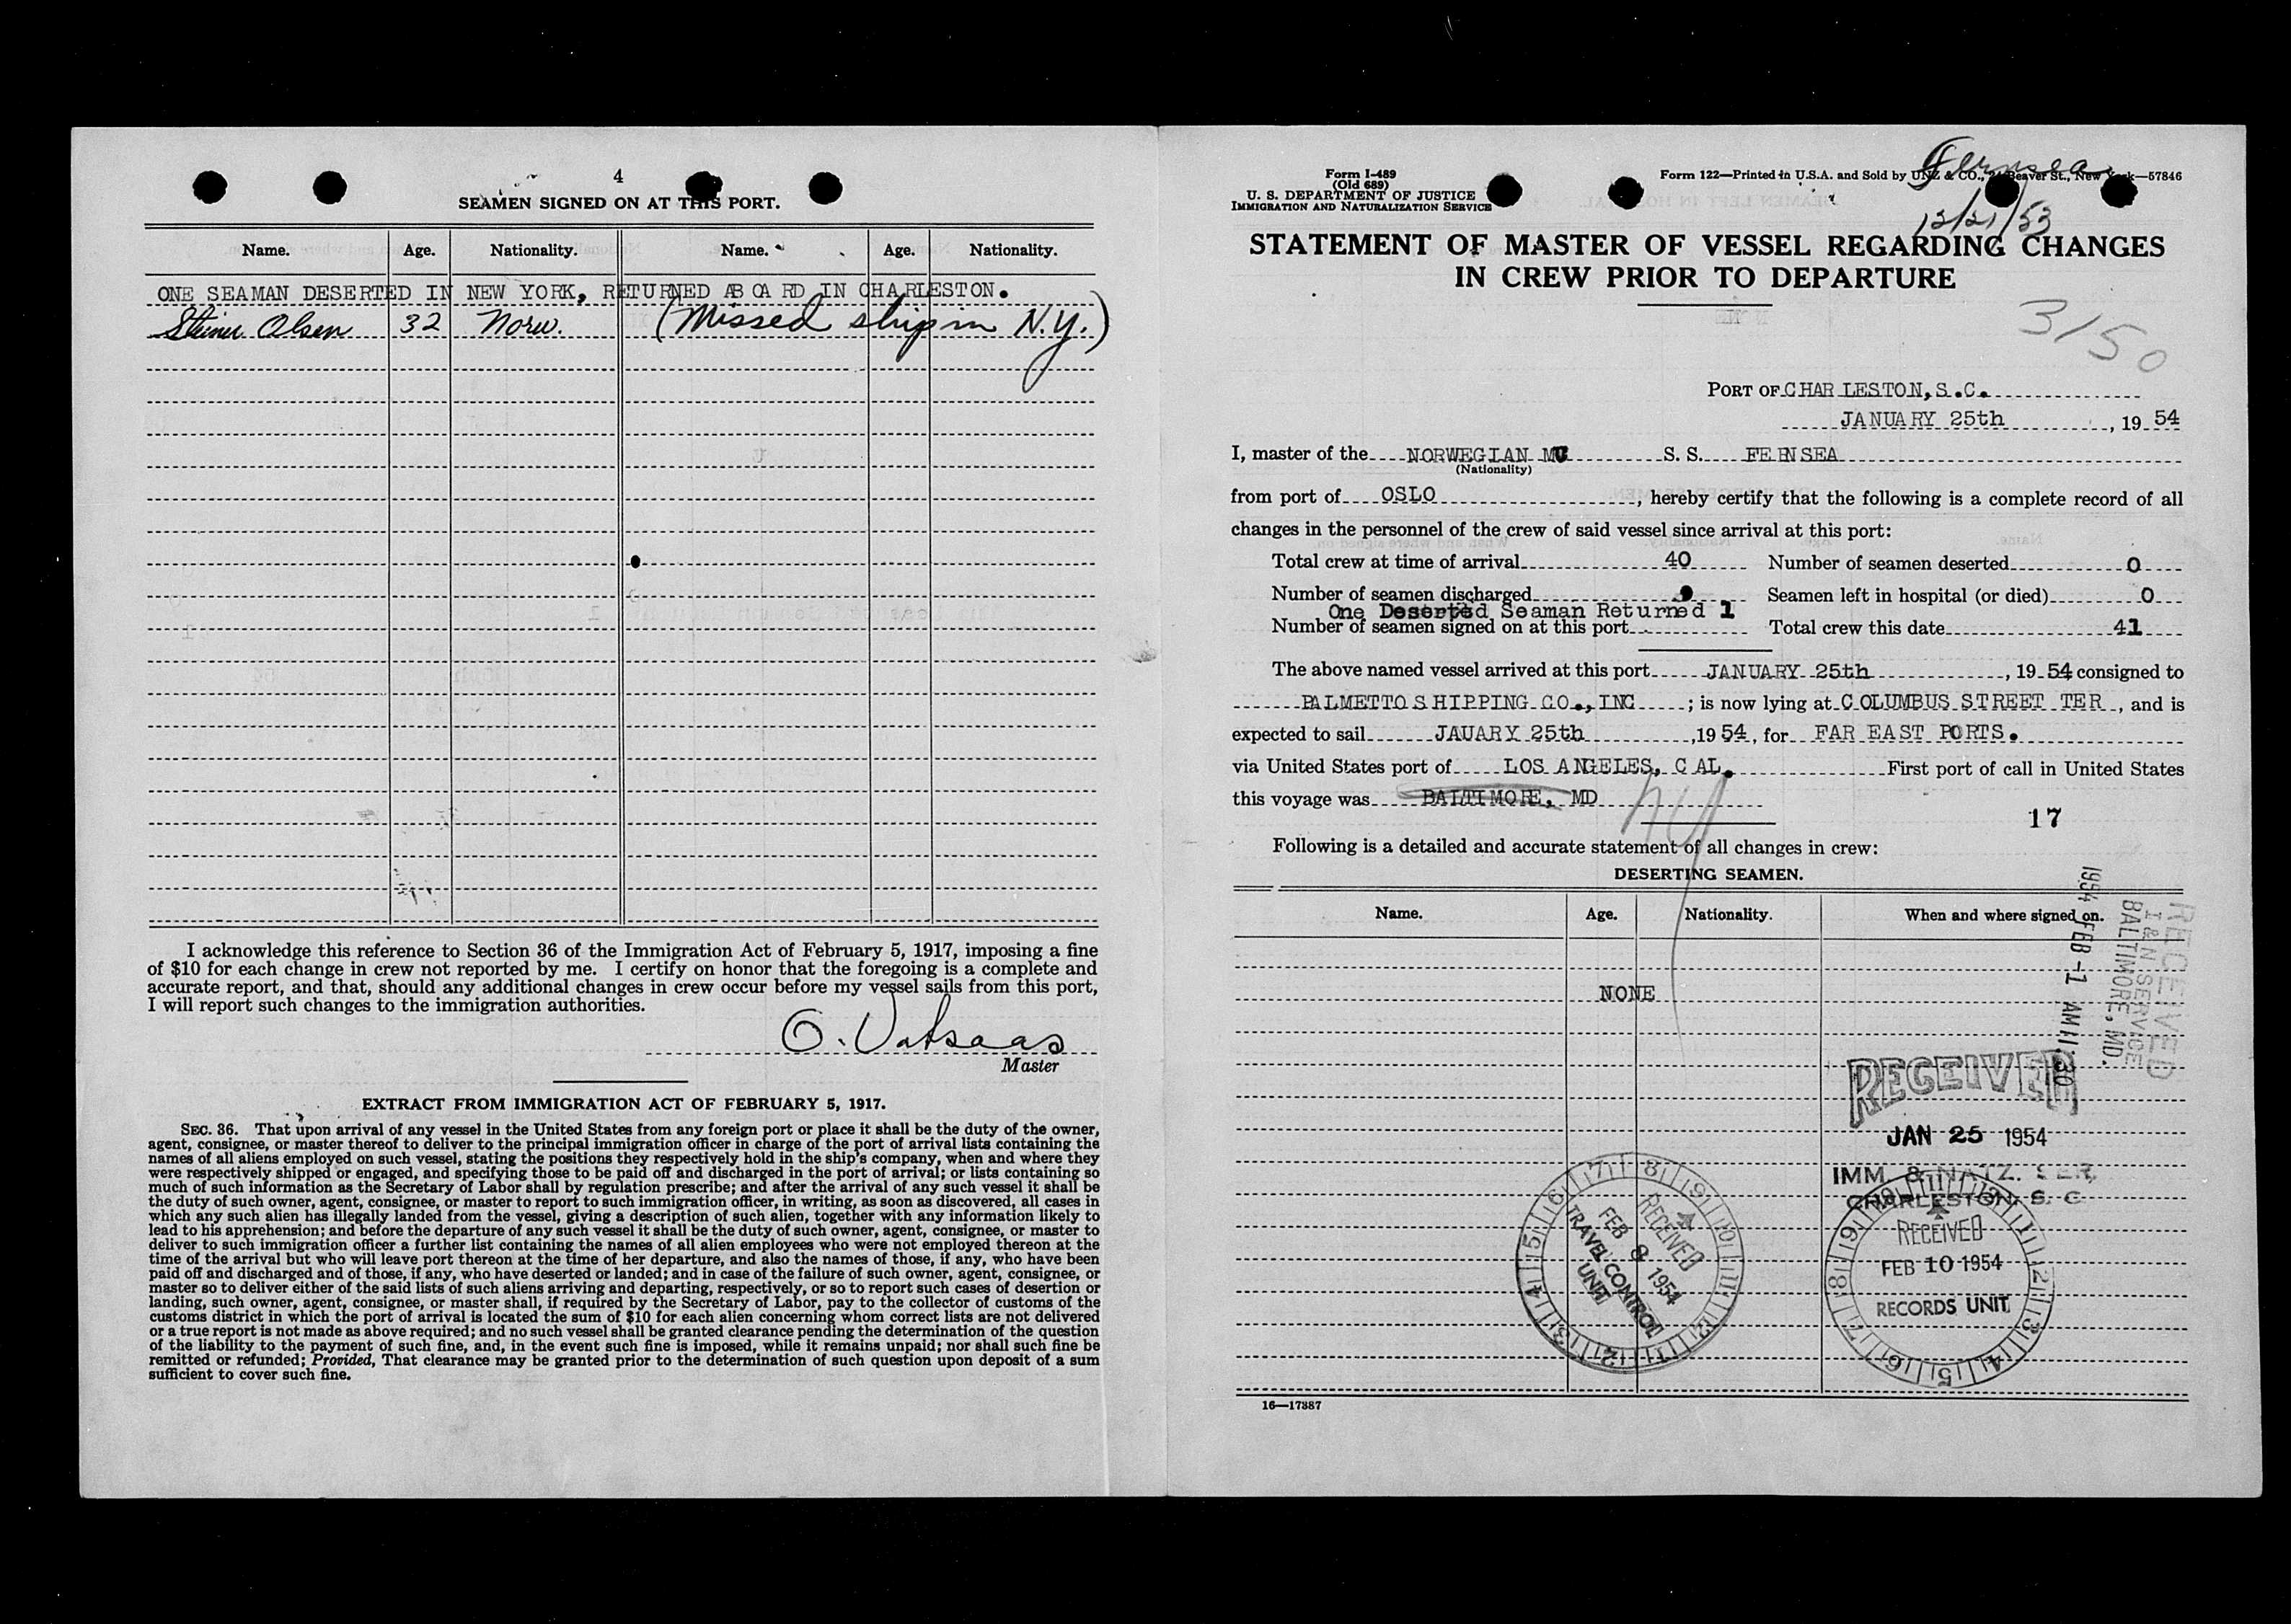 4
SEAMEN SIGNED ON AT THIS PORT.
Name. Age. Nationality. Name. Age. Nationality.
ONE SEAMAN DESERTED IN NEW YORK, RETURNED ABOARD IN CHARLESTON.
Steiner Olsen 32 Norw. (Missed ship in N.Y.)
I acknowledge this reference to Section 36 of the Immigration Act of February 5, 1917, imposing a fine
of $10 for each change in crew not reported by me. I certify on honor that the foregoing is a complete and
accurate report, and that, should any additional changes in crew occur before my vessel sails from this port,
I will report such changes to the immigration authorities.
O. Vatsaas
Master
EXTRACT FROM IMMIGRATION ACT OF FEBRUARY 5, 1917.
SEC. 36. That upon arrival of any vessel in the United States from any foreign port or place it shall be the duty of the owner,
agent, consignee, or master thereof to deliver to the principal immigration officer in charge of the port of arrival lists containing the
names of all aliens employed on such vessel, stating the positions they respectively hold in the ship's company, when and where they
were respectively shipped or engaged, and specifying those to be paid off and discharged in the port of arrival; or lists containing so
much of such information as the Secretary of Labor shall by regulation prescribe; and after the arrival of any such vessel it shall be
the duty of such owner, agent, consignee, or master to report to such immigration officer, in writing, as soon as discovered, all cases in
which any such alien has illegally landed from the vessel, giving a description of such alien, together with any information likely to
lead to his apprehension; and before the departure of any such vessel it shall be the duty of such owner, agent, consignee, or master to
deliver to such immigration officer a further list containing the names of all alien employees who were not employed thereon at the
time of the arrival but who will leave port thereon at the time of her departure, and also the names of those, if any, who have been
paid off and discharged and of those, if any, who have deserted or landed; and in case of the failure of such owner, agent, consignee, or
master so to deliver either of the said lists of such aliens arriving and departing, respectively, or so to report such cases of desertion or
landing, such owner, agent, consignee, or master shall, if required by the Secretary of Labor, pay to the collector of customs of the
customs district in which the port of arrival is located the sum of $10 for each alien concerning whom correct lists are not delivered
or a true report is not made as above required; and no such vessel shall be granted clearance pending the determination of the question
of the liability to the payment of such fine, and, in the event such fine is imposed, while it remains unpaid; nor shall such fine be
remitted or refunded; Provided, That clearance may be granted prior to the determination of such question upon deposit of a sum
sufficient to cover such fine.
Form I-489
(Old 689)
U. S. DEPARTMENT OF JUSTICE
IMMIGRATION AND NATURALIZATION SERVICE
Form 122—Printed in U.S.A. and Sold by UNZ & CO., Beaver St., New York—57846
Fernsea
12/21/53
STATEMENT OF MASTER OF VESSEL REGARDING CHANGES
IN CREW PRIOR TO DEPARTURE
3150
PORT OF CHARLESTON, S.C.
JANUARY 25th, 1954
I, master of the NORWEGIAN S. S. FERNSEA
(Nationality)
from port of OSLO, hereby certify that the following is a complete record of all
changes in the personnel of the crew of said vessel since arrival at this port:
Total crew at time of arrival 40 Number of seamen deserted 0
Number of seamen discharged Seamen left in hospital (or died) 0
One Deserted Seaman Returned 1
Number of seamen signed on at this port Total crew this date 41
The above named vessel arrived at this port JANUARY 25th, 1954 consigned to
PALMETTO SHIPPING CO., INC; is now lying at COLUMBUS STREET TER, and is
expected to sail JAUARY 25th, 1954, for FAR EAST PORTS.
via United States port of LOS ANGELES, CAL. First port of call in United States
this voyage was BALTIMORE, MD NY
17
Following is a detailed and accurate statement of all changes in crew:
DESERTING SEAMEN.
Name. Age. Nationality. When and where signed on.
NONE
RECEIVED
I & N SERVICE
BALTIMORE, MD.
1954 FEB -1 AM 11:30
RECEIVED
JAN 25 1954
IMM. & NATZ. SER.
CHARLESTON, S. C.
RECEIVED
FEB 8 1954
TRAVEL CONTROL
UNIT
RECEIVED
FEB 10 1954
RECORDS UNIT
16—17387